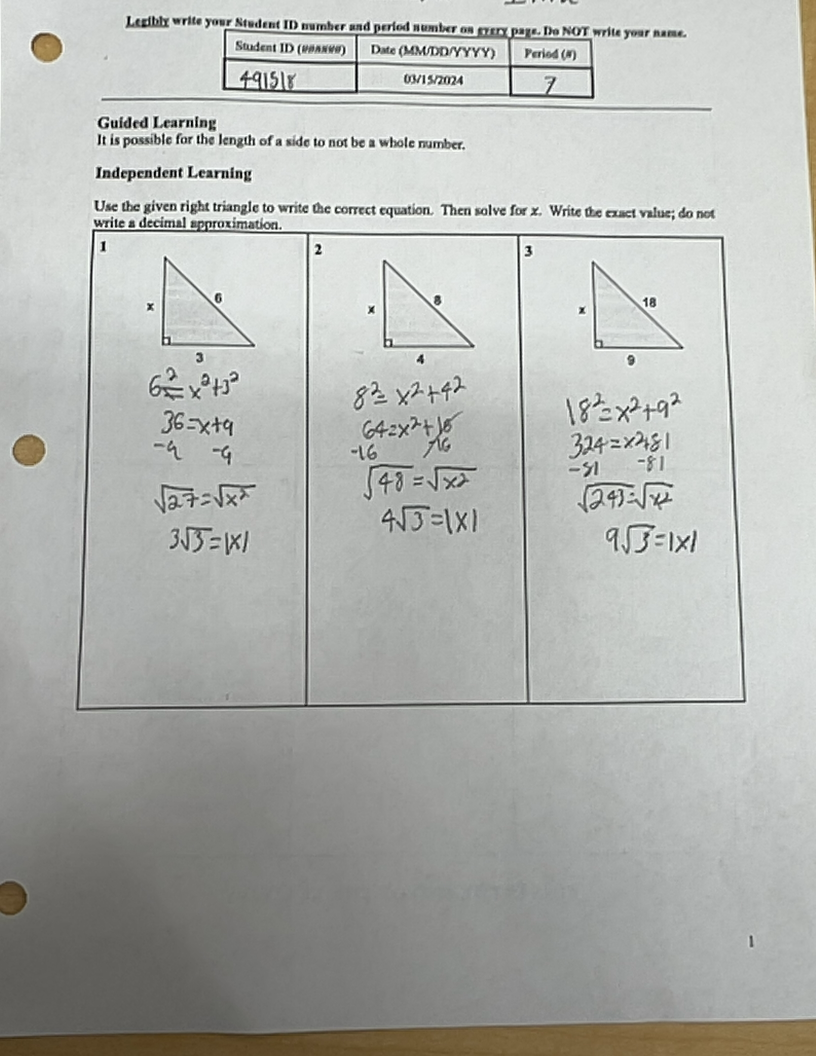 Legibly write your Student ID number and period number on every page. Do NOT write your name.
Student ID (######) Date (MM/DD/YYYY) Period (#)
491518 03/15/2024 7
Guided Learning
It is possible for the length of a side to not be a whole number.
Independent Learning
Use the given right triangle to write the correct equation. Then solve for x. Write the exact value; do not
write a decimal approximation.
1
x 6
3
6²=x²+3²
36=x+9
-9 -9
√27=√x²
3√3=|x|
2
x 8
4
8²=x²+4²
64=x²+16
-16 -16
√48=√x²
4√3=|x|
3
x 18
9
18²=x²+9²
324=x²+81
-81 -81
√243=√x²
9√3=|x|
1